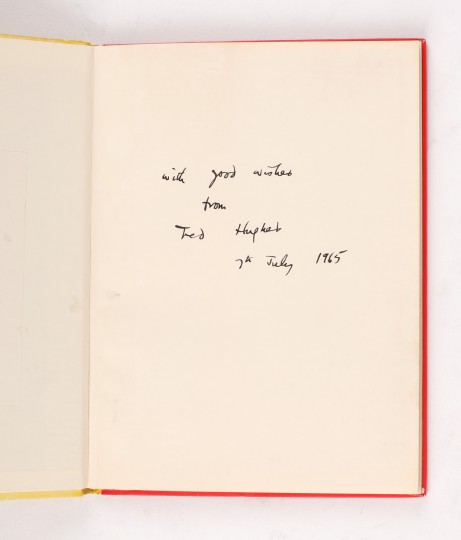 with good wishes
from
Ted Hughes
7th July 1965